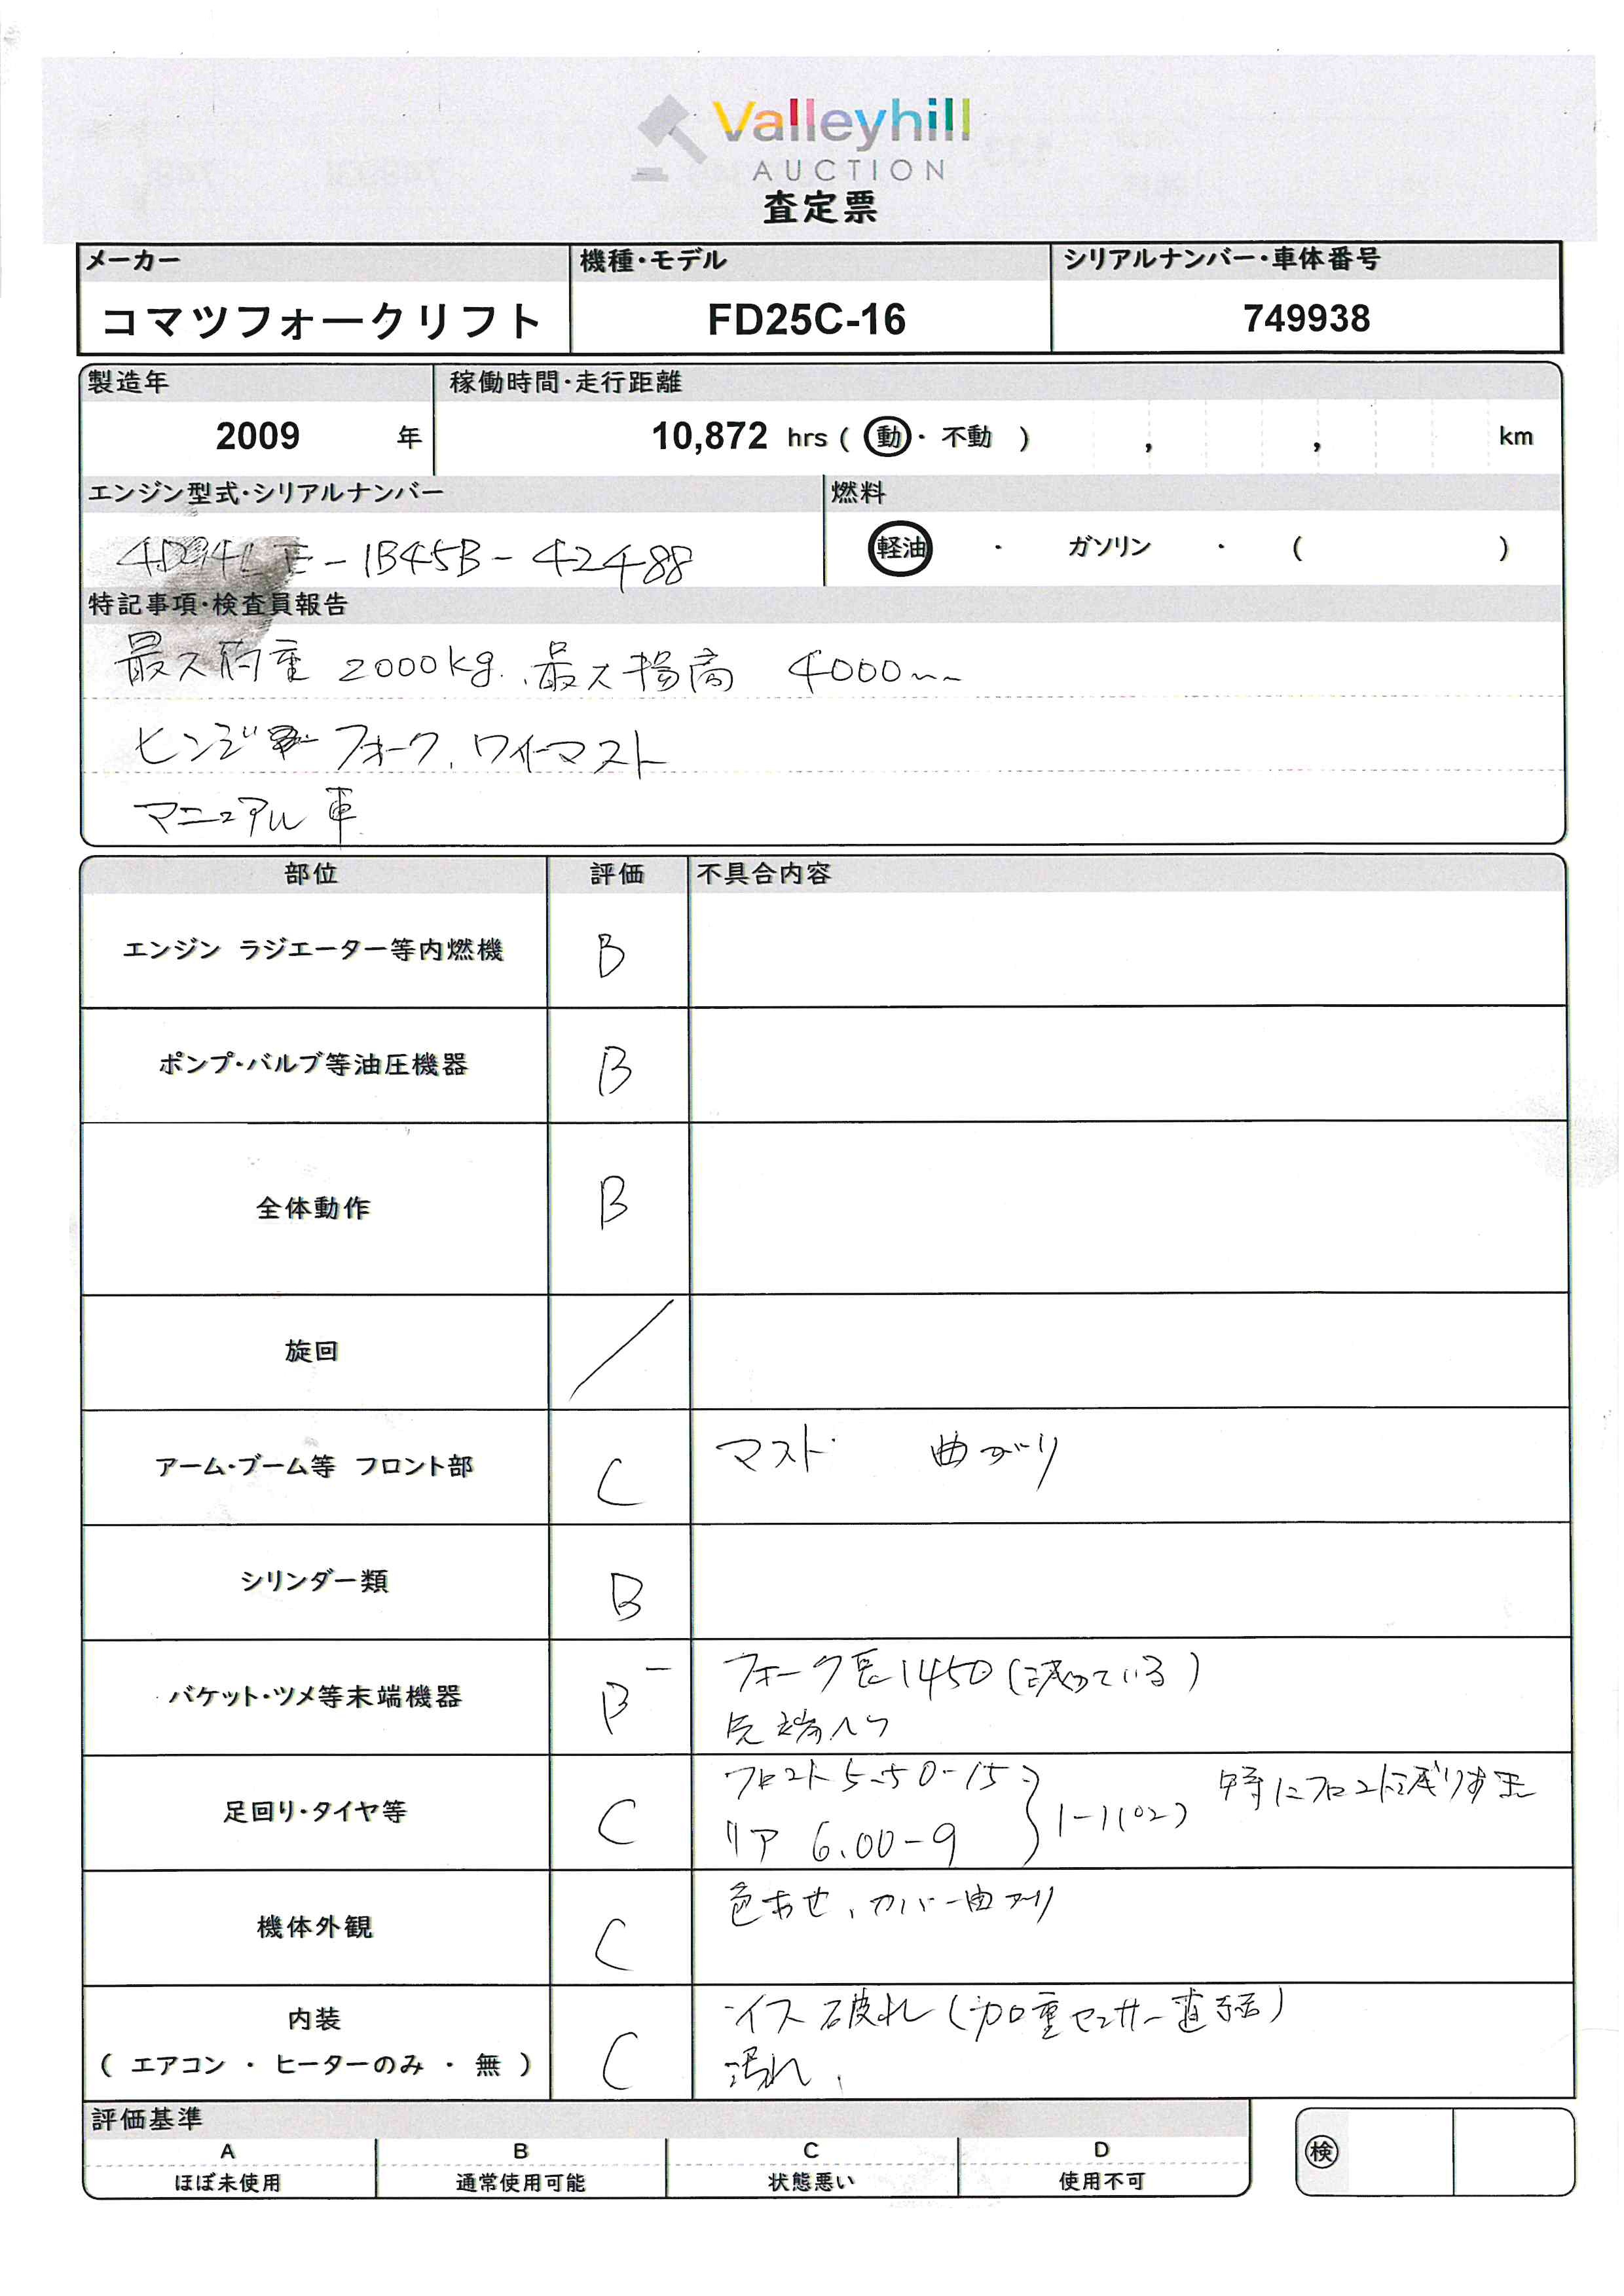 Valleyhill
AUCTION
査定票
メーカー 機種・モデル シリアルナンバー・車体番号
コマツフォークリフト FD25C-16 749938
製造年 稼働時間・走行距離
2009 年 10,872 hrs ( 動 ・ 不動 ) , , km
エンジン型式・シリアルナンバー 燃料
4D94LE-1B45B-42488 軽油 ・ ガソリン ・ ( )
特記事項・検査員報告
最大荷重 2000kg、最大揚高 4000mm
ヒンジ フォーク、ワイマスト
マニュアル車
部位 評価 不具合内容
エンジン ラジエーター等内燃機 B
ポンプ・バルブ等油圧機器 B
全体動作 B
旋回 /
アーム・ブーム等 フロント部 C マスト 曲がり
シリンダー類 B
バケット・ツメ等末端機器 B- フォーク長1450(減っている)
先端へり
足回り・タイヤ等 C フロント5.50-15
リア 6.00-9 特にフロント残りすき
機体外観 C 色あせ、カバー曲がり
内装 イス破れ(加重センサー直結)
( エアコン ・ ヒーターのみ ・ 無 ) C 汚れ、
評価基準
A B C D 検
ほぼ未使用 通常使用可能 状態悪い 使用不可